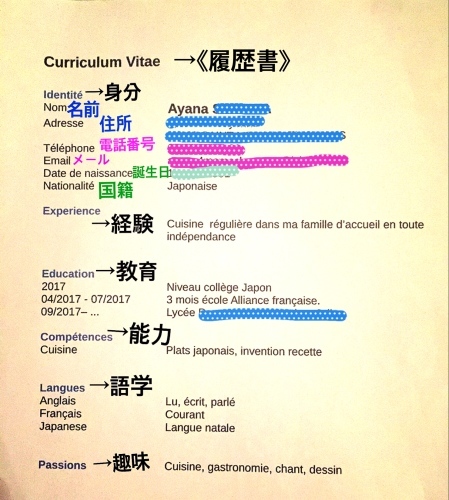 Curriculum Vitae →《履歴書》
Identité →身分
Nom 名前 Ayana
Adresse 住所
Téléphone 電話番号
Email メール
Date de naissance 誕生日
Nationalité 国籍 Japonaise
Experience
→経験 Cuisine régulière dans ma famille d'accueil en toute
indépendance
Education →教育
2017 Niveau collège Japon
04/2017 - 07/2017 3 mois école Alliance française.
09/2017– ... Lycée
Compétences →能力
Cuisine Plats japonais, invention recette
Langues →語学
Anglais Lu, écrit, parlé
Français Courant
Japanese Langue natale
Passions →趣味 Cuisine, gastronomie, chant, dessin